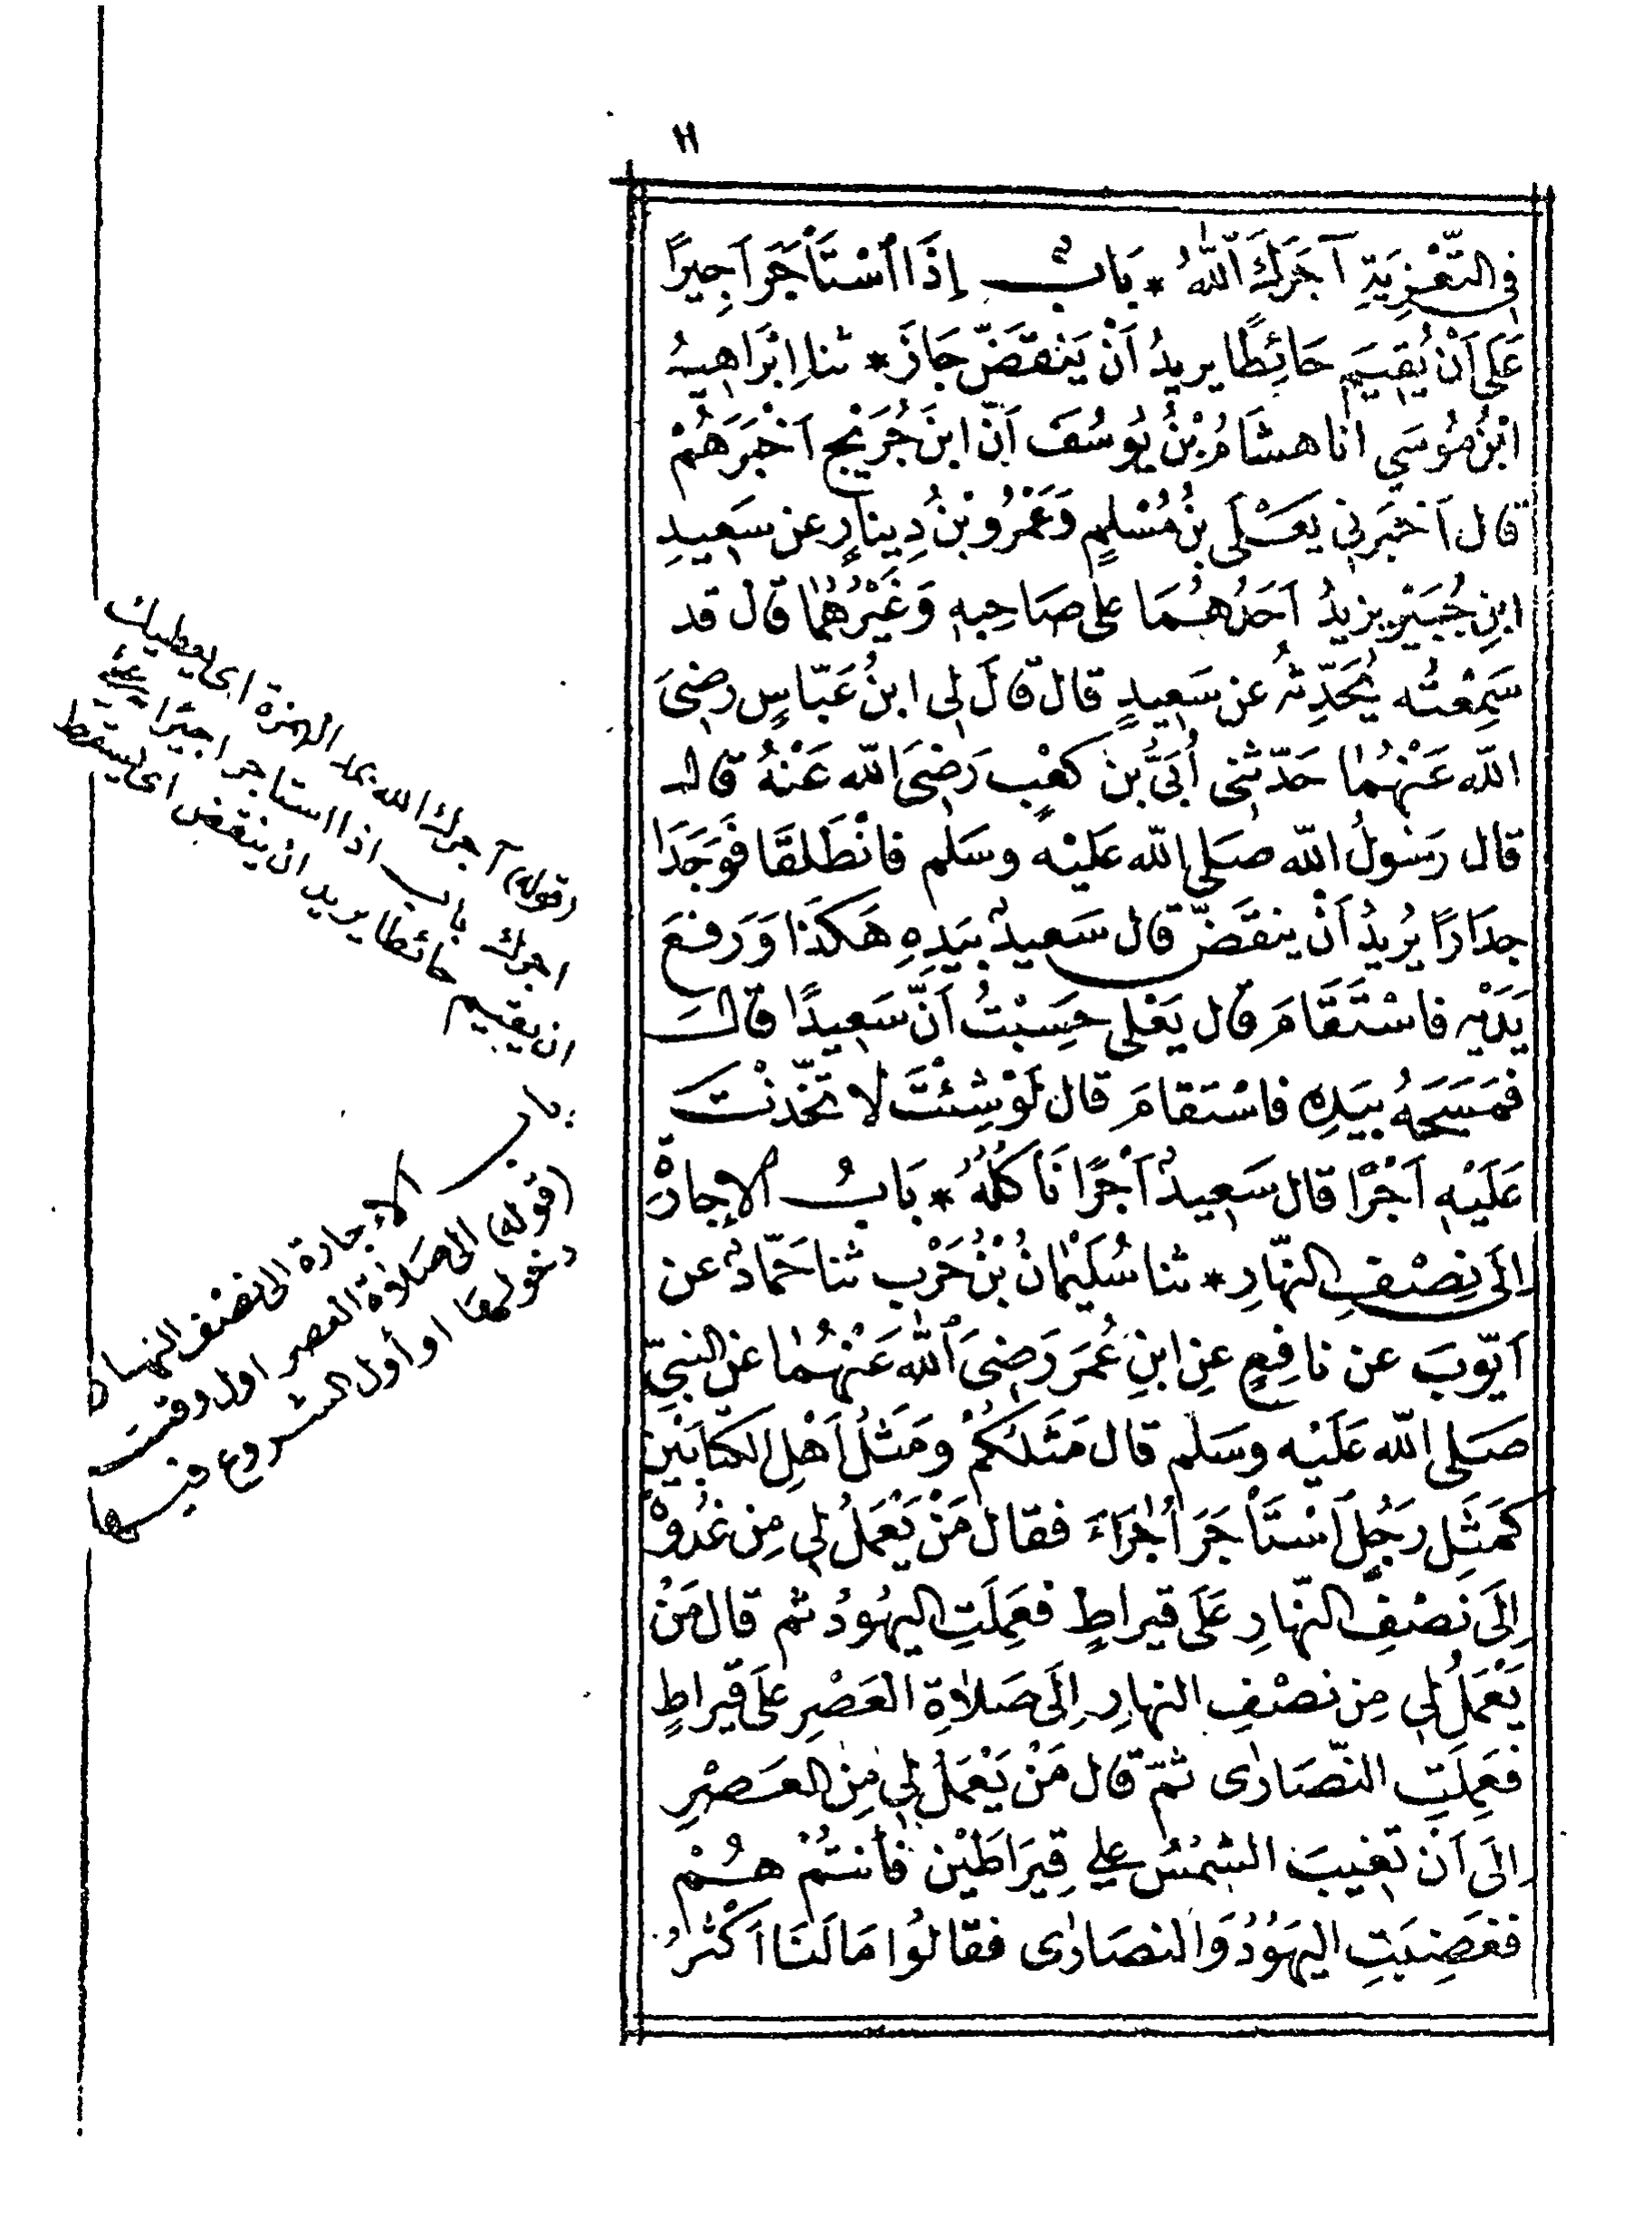 ١١
في التَّعْزِيَةِ آجَرَكَ اللّٰهُ * بَابٌ إِذَا اسْتَأْجَرَ أَجِيرًا
عَلَى أَنْ يُقِيمَ حَائِطًا يريدُ أَنْ يَنْقَضَّ جَازَ * ثنا إِبْرَاهِيمُ
ابْنُ مُوسَي انا هشَامُ بْنُ يُوسُفَ أَنَّ ابنَ جُرَيْجٍ أَخْبَرَهُمْ
قال أَخْبَرَنِي يَعْلَى بْنُ مُسْلِمٍ وَعَمْرُو بْنُ دِينارٍ عن سَعِيدِ
ابنِ جُبَيْرٍ يزيدُ أَحَدُهُمَا على صَاحِبِهِ وَغَيْرُهُمَا قال قد
سَمِعْتُه يُحَدِّثُهُ عن سَعِيدٍ قال قالَ لِي ابنُ عَبّاسٍ رضِيَ
اللّه عَنْهُمَا حَدّثني أُبَيُّ بنُ كعْبٍ رَضِيَ اللّه عَنْهُ قال
قال رَسُولُ اللّه صَلى اللّه عَليْه وسَلم فانْطَلَقَا فَوَجَدَا
جِدَارًا يُرِيدُ أَنْ ينقَضَّ قال سَعِيدٌ بِيَدِهِ هَكَذَا وَرَفعَ
يَدَيْهِ فاسْتَقَامَ قال يَعْلى حَسِبْتُ أَنَّ سَعِيدًا قالَ
فمَسَحَهُ بِيَدِهِ فاسْتَقامَ قال لَوْ شِئْتَ لاتَّخَذْتَ
عَلَيْهِ أَجْرًا قال سَعِيدٌ أَجْرًا نَأكُلُهُ * بَابُ الإِجارَةِ
إِلَى نِصْفِ النّهارِ * ثنا سُلَيْمَانُ بْنُ حَرْبٍ ثنا حَمّادٌ عن
أَيّوبَ عن نافِعٍ عنِ ابنِ عُمَرَ رَضِيَ اللّٰه عَنْهُمَا عنِ النبيِّ
صَلى اللّه عَلَيْه وسَلم قال مَثَلُكُمْ ومَثلُ أَهْلِ الكتابَيْنِ
كَمَثَلِ رَجُلٍ اسْتَأْجَرَ أُجَرَاءَ فقال مَنْ يَعْمَلُ لِي مِن غُدْوَةَ
إِلَى نِصْفِ النّهارِ عَلَى قيراطٍ فعَمِلَتِ اليهُودُ ثم قال مَنْ
يَعْمَلُ لِي مِن نصْفِ النهارِ إِلَى صَلاةِ العَصْرِ عَلَى قيراطٍ
فعَمِلَتِ النّصَارَى ثمّ قال مَنْ يَعْمَلُ لِي مِن العَصْرِ
إِلَى أَنْ تَغِيبَ الشمْسُ علي قِيرَاطَيْنِ فأنتُمْ هُمْ
فغَضِبَتِ اليهَوُدُ وَالنصَارَى فقَالُوا مَا لَنَا أَكْثرُ
(قوله) آجرك الله بمد الهمزة اي يعطيك
اجرك باب اذا استاجر اجيرًا على
ان يقيم حائطا يريد ان ينقض اي يسقط
باب الاجارة الى نصف النهار
(قوله) الى صلاة العصر اول وقت
دخولها او أول الشروع فيها